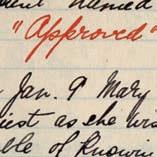 named
"Approved"
Jan. 9 Mary
as she was
of Known